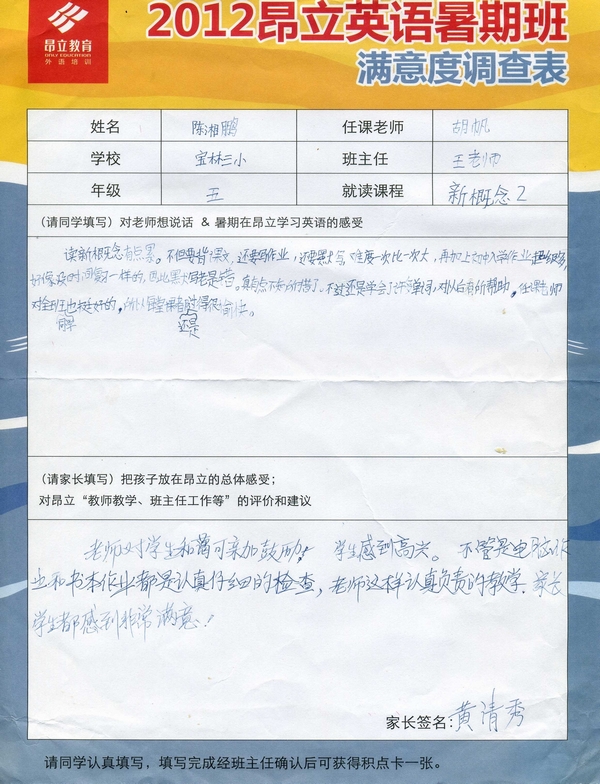 昂立教育
ONLY EDUCATION
外语培训
2012昂立英语暑期班
满意度调查表
姓名 陈湘鹏 任课老师 胡帆
学校 宝林三小 班主任 王老师
年级 五 就读课程 新概念2
(请同学填写)对老师想说话 & 暑期在昂立学习英语的感受
读新概念有点累。不但要背课文,还要写作业,还要默写,难度一次比一次大,再加上初中入学作业
好像没时间 一样的,因此默写老是 。真有点不知所措了。不过还是学会了许多单词,对以后有所帮助。任课老师
对全班也挺好的。所以每堂课 过得很愉快。
同学
还是
(请家长填写)把孩子放在昂立的总体感受;
对昂立“教师教学、班主任工作等”的评价和建议
老师对学生和蔼可亲加鼓励!学生感到高兴。不管是电脑作
业和书本作业都是认真仔细的检查,老师这样认真负责的教学.家长
学生都感到非常满意!
家长签名:黄清秀
请同学认真填写,填写完成经班主任确认后可获得积点卡一张。